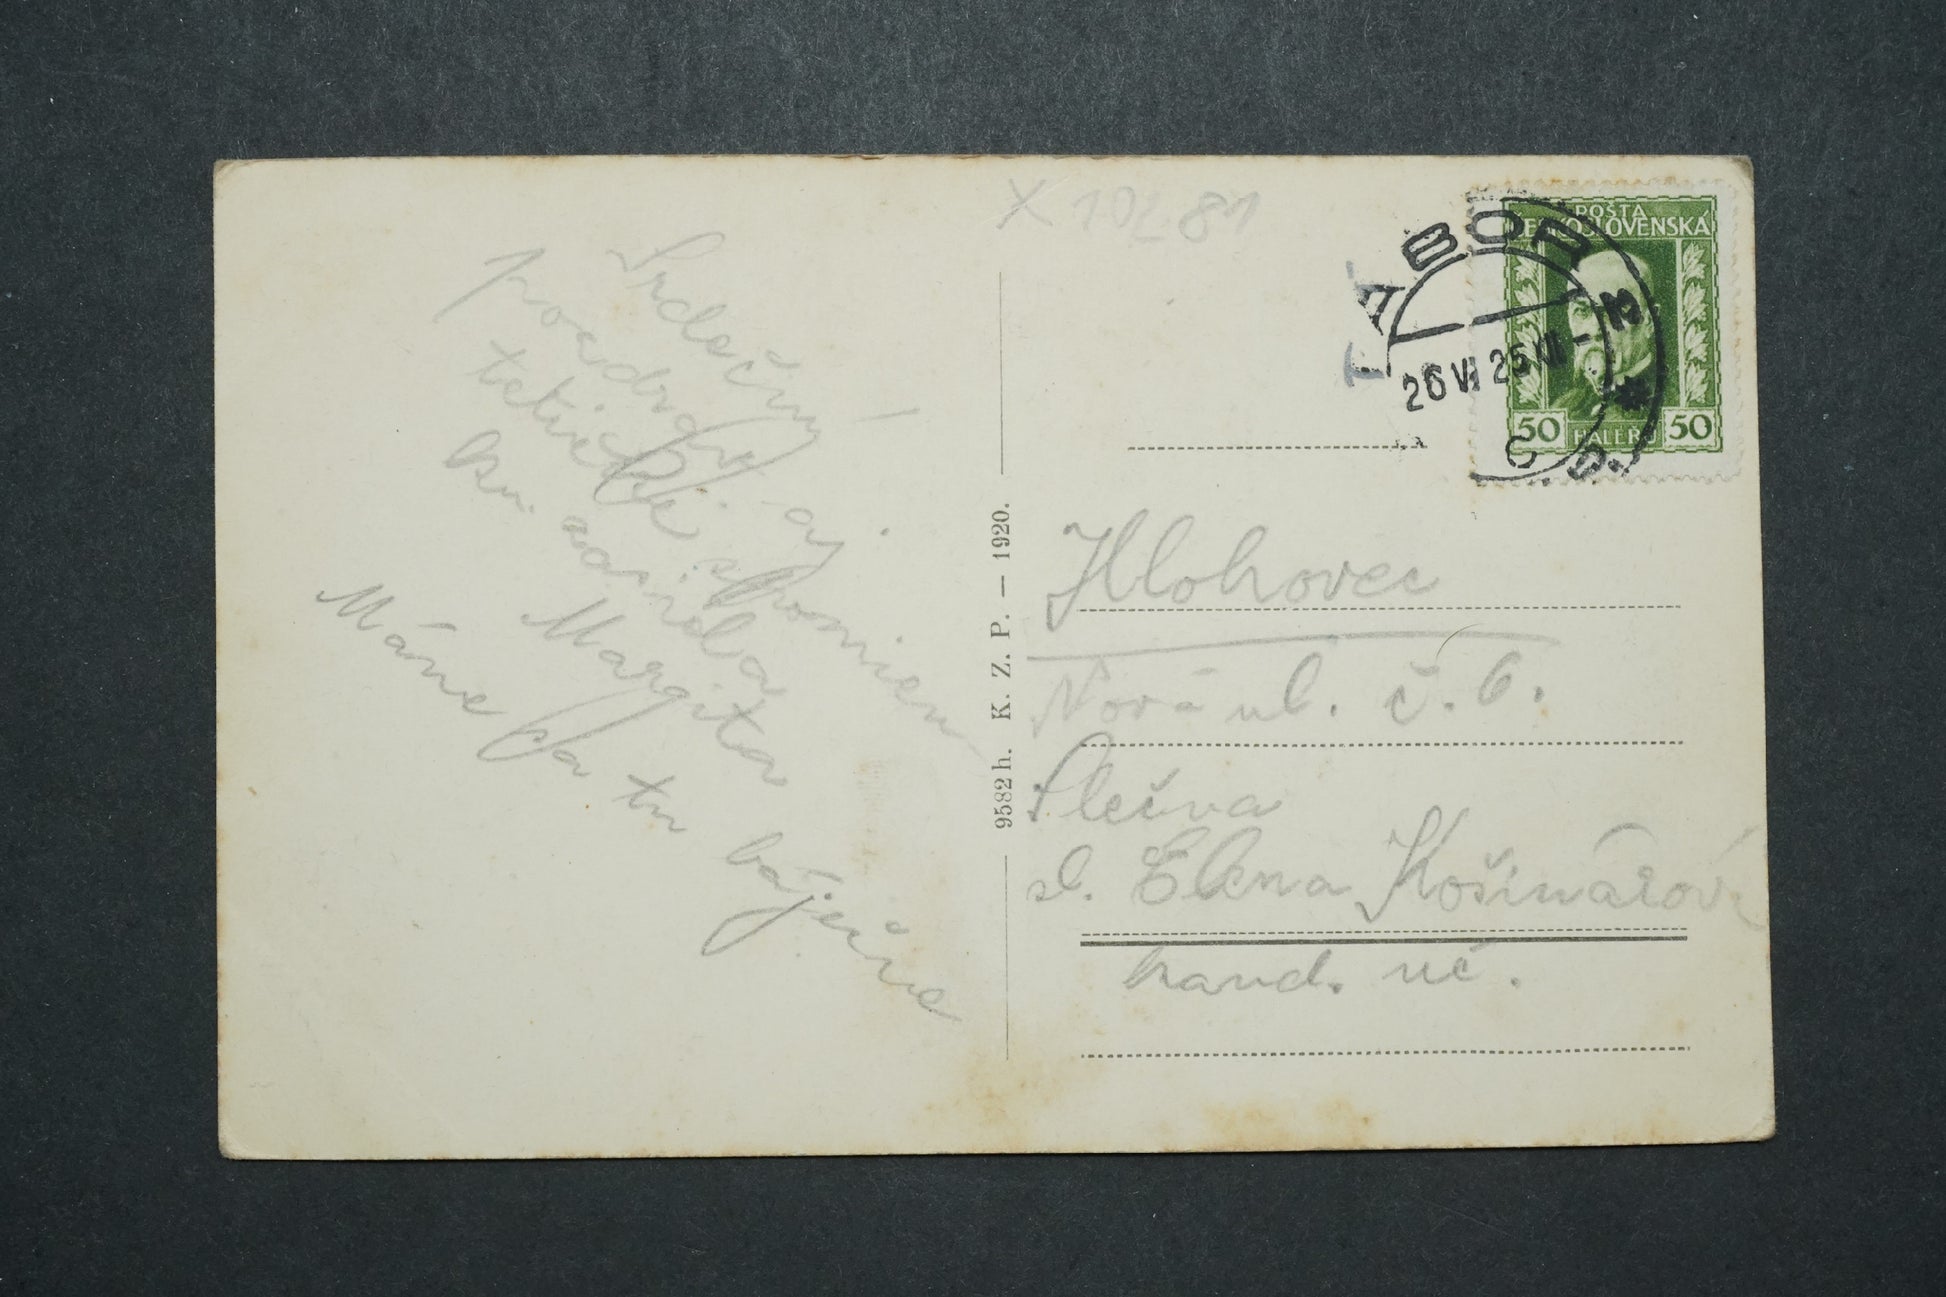 X 10281
Srdečný
pozdrav aj
tetičke spomien
Margita
Máme sa tu báječne
9582 h. K. Z. P. — 1920.
TÁBOR 2
26 VI 25 XII -
POŠTA
ČESKOSLOVENSKÁ
50 HALÉŘŮ 50
Hlohovec
Nová ul. č. 6.
Slečna
sl. Elena Košinárová
hand. uč.